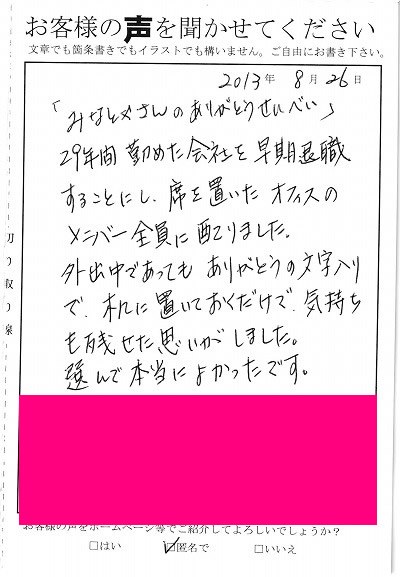 お客様の声を聞かせてください
文章でも箇条書きでもイラストでも構いません。ご自由にお書き下さい。
2013年 8月26日
「みなとやさんのありがとうせんべい」
29年間 勤めた会社を早期退職
することにし、席を置いた オフィスの
メンバー全員に配りました。
外出中であっても ありがとうの文字入り
で、机に置いておくだけで、気持ち
も残せた思いがしました。
選んで本当によかったです。
切り取り線
お客様の声をホームページ等でご紹介してよろしいでしょうか?
□はい ☑匿名で □いいえ